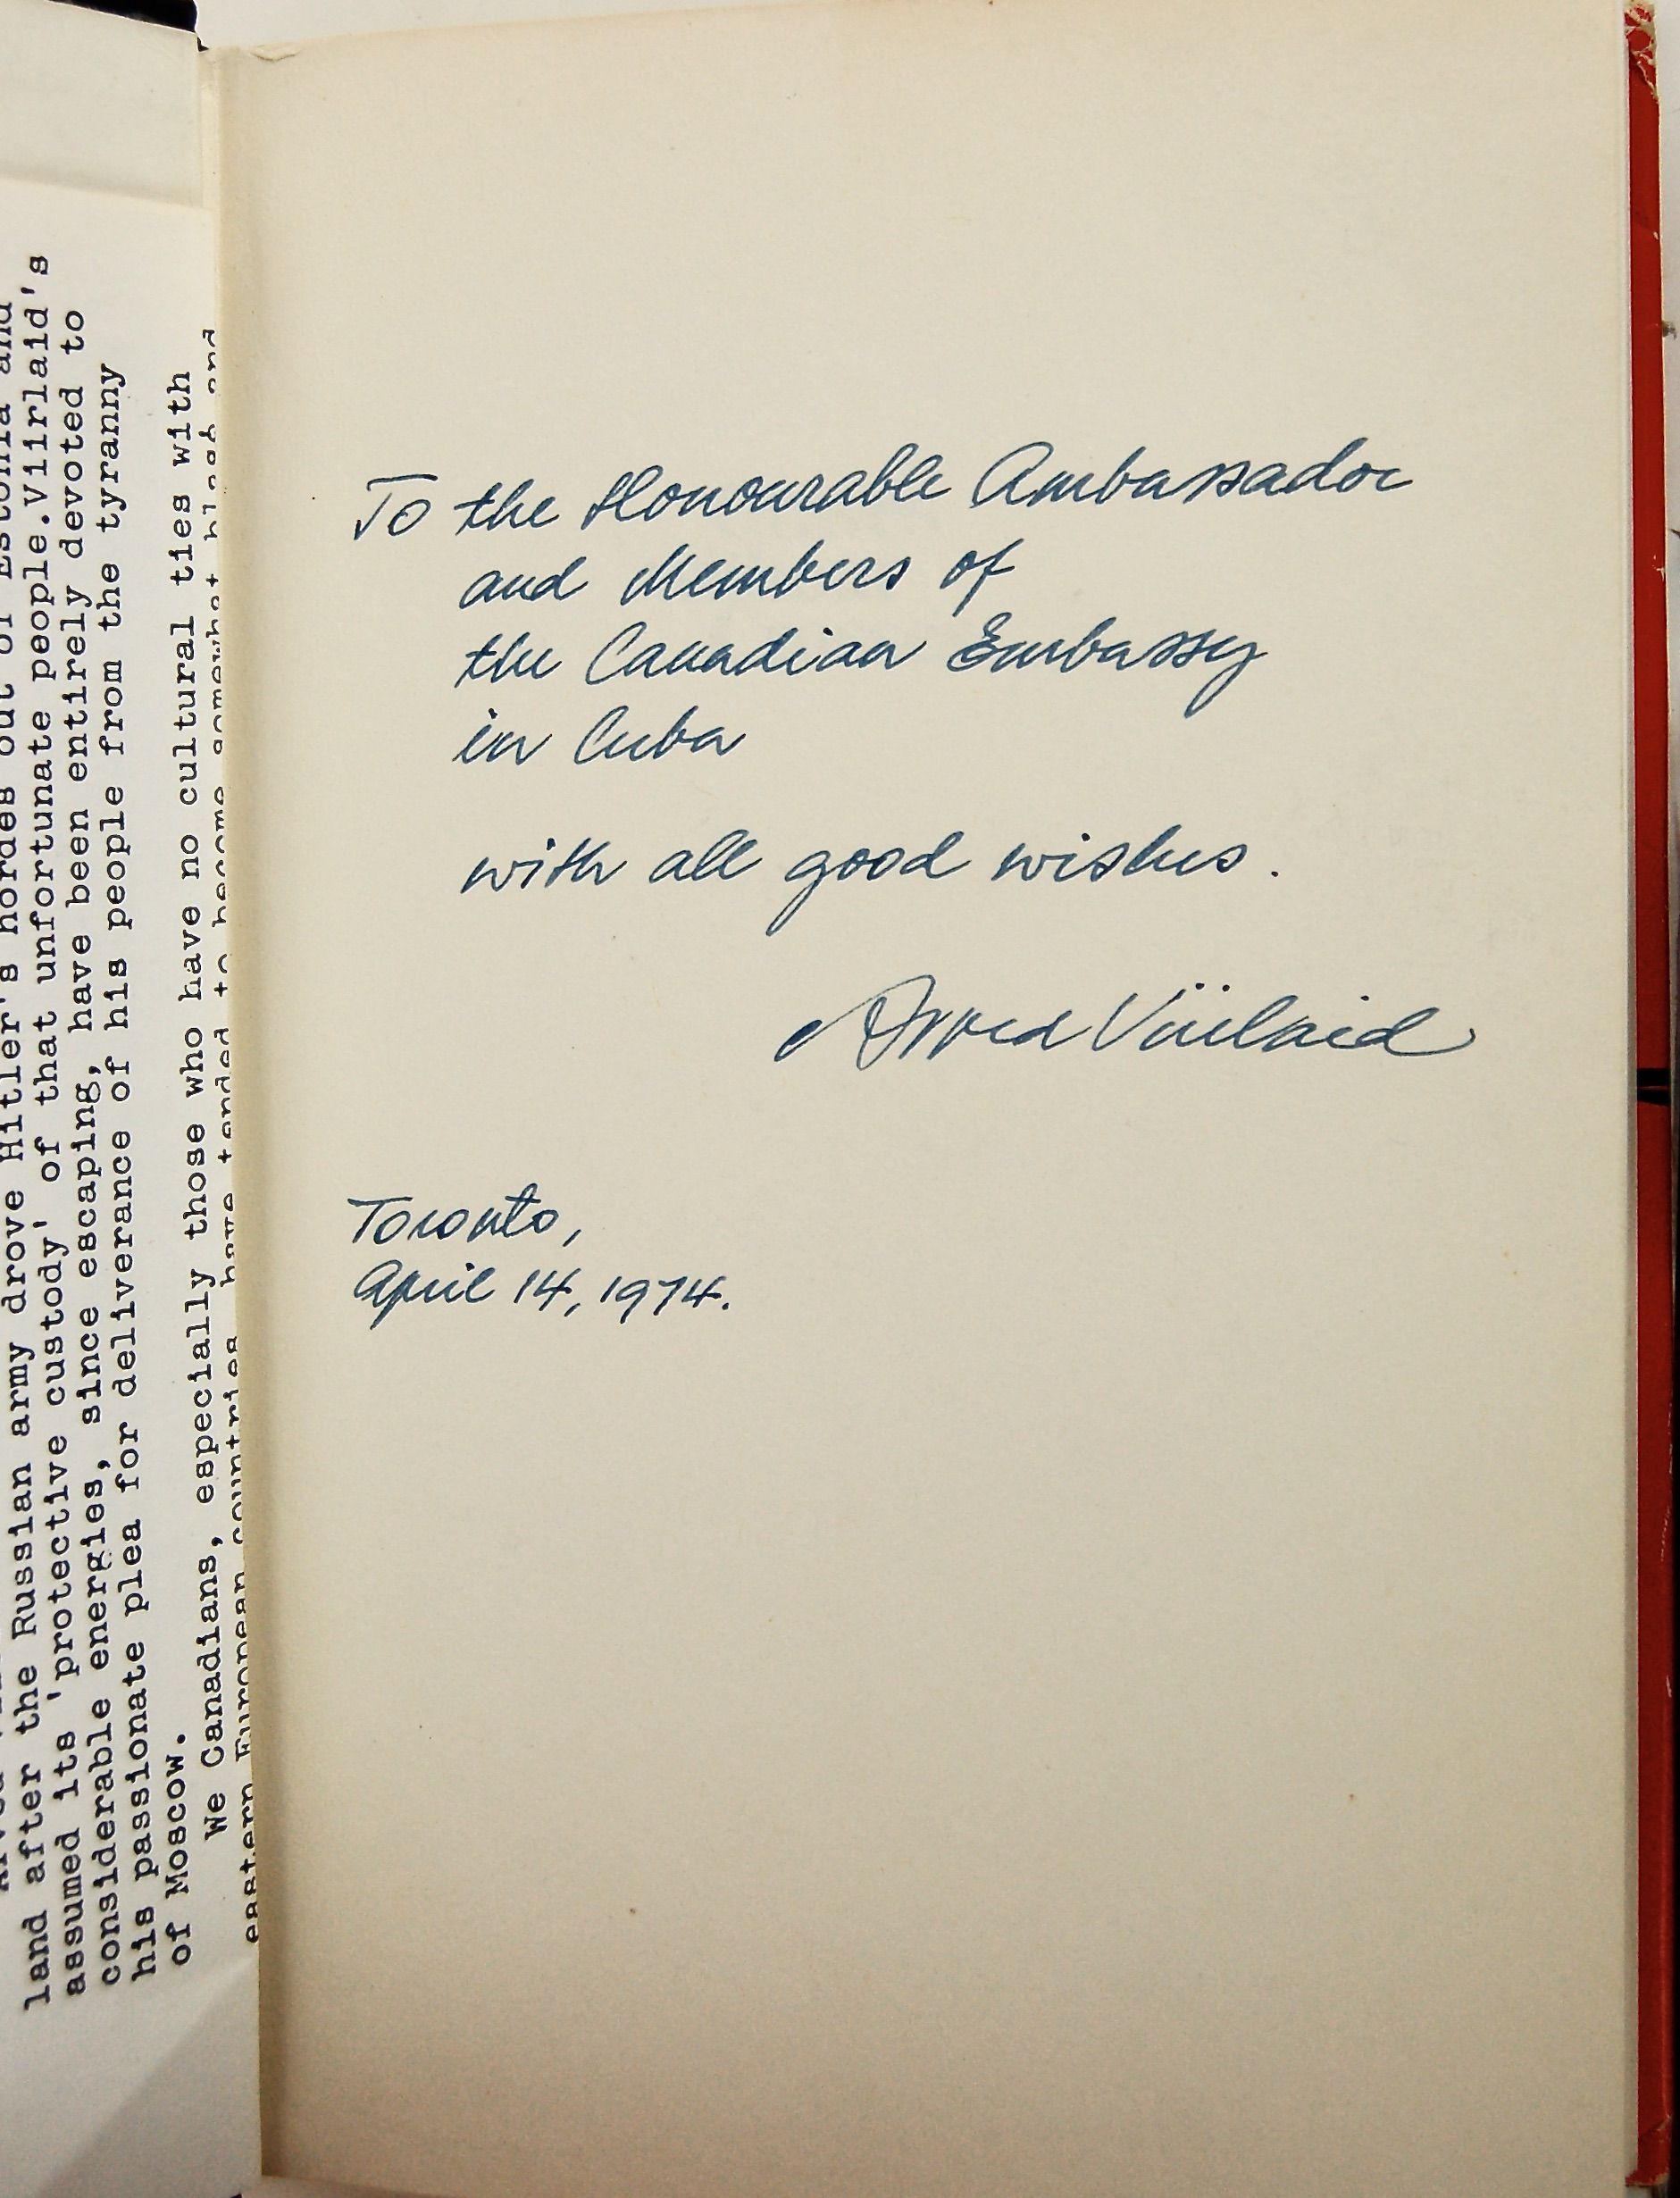 To the Honourable Ambassador
and Members of
the Canadian Embassy
in Cuba
with all good wishes.
Arved Viirlaid
Toronto,
April 14, 1974.
land after the Russian army drove Hitler's hordes out of Estonia and
assumed its 'protective custody' of that unfortunate people.Viirlaid's
considerable energies, since escaping, have been entirely devoted to
his passionate plea for deliverance of his people from the tyranny
of Moscow.
We Canadians, especially those who have no cultural ties with
eastern European countries have tended to become somewhat blasé and